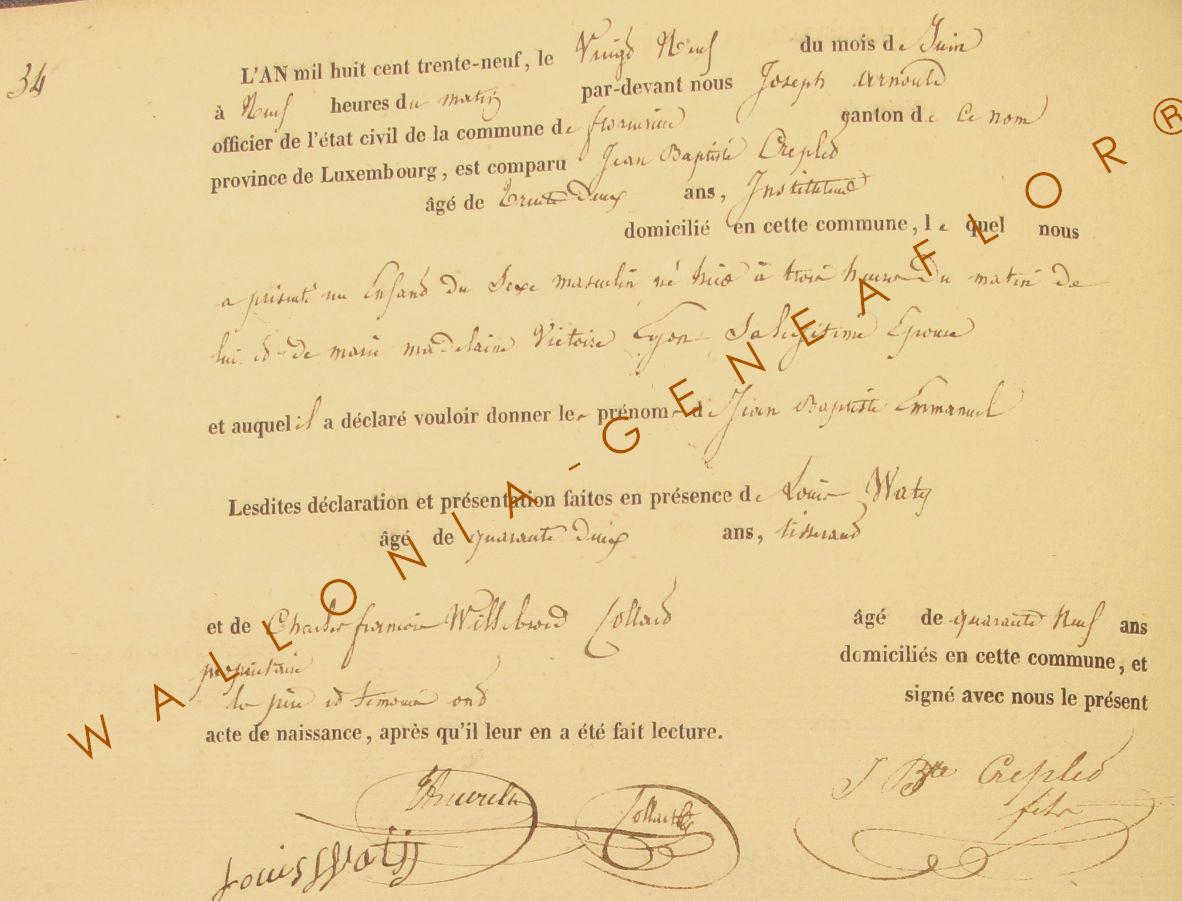 34
L'AN mil huit cent trente-neuf, le Vingt Neuf du mois de Juin
à Neuf heures du matin par-devant nous Joseph Arnould
officier de l'état civil de la commune de canton de ce nom
province de Luxembourg, est comparu Jean Baptiste Crepled
âgé de Trente Deux ans, Instituteur
domicilié en cette commune, le quel nous
a présenté un Enfant du Sexe masculin né hier à trois heures du matin de
lui et de marie madelaine Victoire Sa légitime Epouse
et auquel il a déclaré vouloir donner les prénoms de Jean Baptiste Emmanuel
Lesdites déclaration et présentation faites en présence de Louis Waty
âgé de quarante deux ans, tisserand
et de Charles françois Willebrord Collard âgé de quarante Neuf ans
propriétaire domiciliés en cette commune, et
le père et témoins ont signé avec nous le présent
acte de naissance, après qu'il leur en a été fait lecture.
J Bte Crepled
fils
Collard
Louis Waty
WALLONIA-GENEAFLOR®